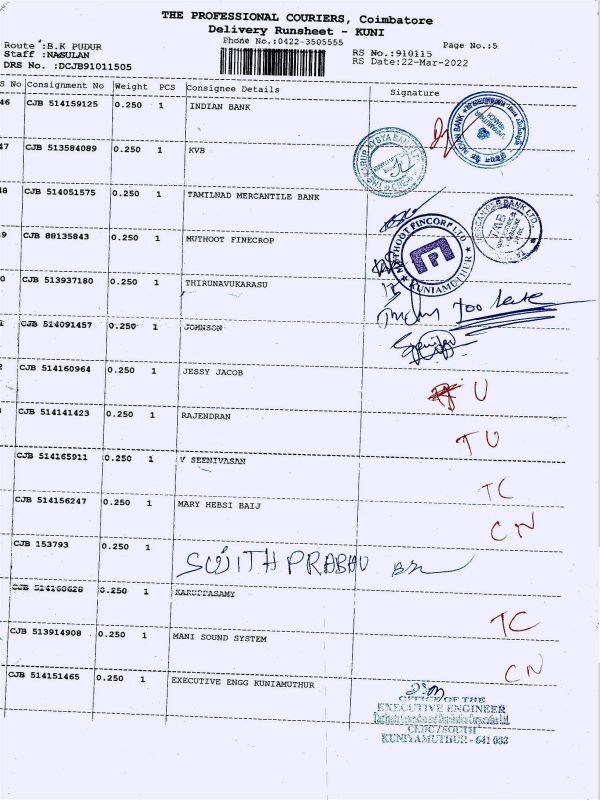 THE PROFESSIONAL COURIERS, Coimbatore
Delivery Runsheet - KUNI
Phone No.:0422-3505555
Page No.:5
Route :B.K PUDUR
Staff :NASULAN
DRS No. :DCJB91011505
RS No.:910115
RS Date:22-Mar-2022
S No Consignment No Weight PCS Consignee Details Signature
46 CJB 514159125 0.250 1 INDIAN BANK
47 CJB 513584089 0.250 1 KVB
48 CJB 514051575 0.250 1 TAMILNAD MERCANTILE BANK
9 CJB 88135843 0.250 1 MUTHOOT FINECROP
MUTHOOT FINCORP LTD
KUNIAMUTHUR
0 CJB 513937180 0.250 1 THIRUNAVUKARASU
too late
1 CJB 514091457 0.250 1 JOMNSON
2 CJB 514160964 0.250 1 JESSY JACOB
U
CJB 514141423 0.250 1 RAJENDRAN
TU
CJB 514165911 0.250 1 V SEENIVASAN
TC
CJB 514156247 0.250 1 MARY HEBSI BAIJ
CN
CJB 153793 0.250 1
PRABAU
CJB 514160628 0.250 1 KARUPPASAMY
TC
CJB 513914908 0.250 1 MANI SOUND SYSTEM
CN
CJB 514151465 0.250 1 EXECUTIVE ENGG KUNIAMUTHUR
OFFICE OF THE
EXECUTIVE ENGINEER
Tamilnadu Generation and Distribution Corporation Ltd.
CEDC/SOUTH
KUNIYAMUTHUR - 641 008